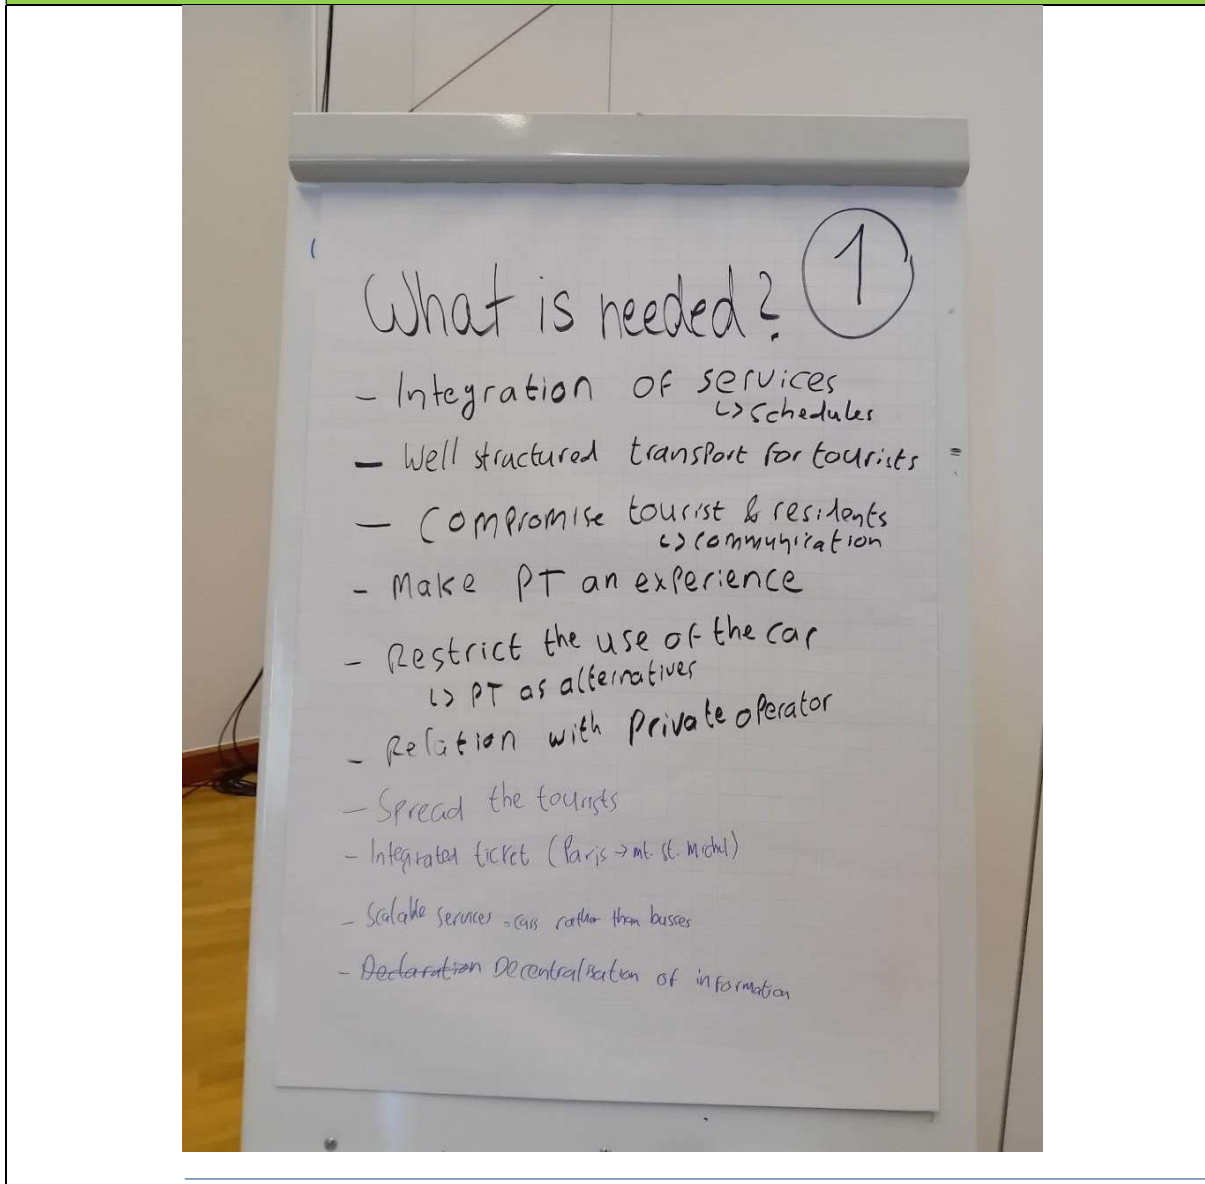 1
What is needed?
- Integration of services
↳ schedules
- Well structured transport for tourists
- Compromise tourist & residents
↳ communication
- Make PT an experience
- Restrict the use of the car
↳ PT as alternatives
- Relation with private operator
- Spread the tourists
- Integrated ticket (Paris → mt. st. Michel)
- Scalable services = cars rather than busses
- Declaration Decentralisation of information